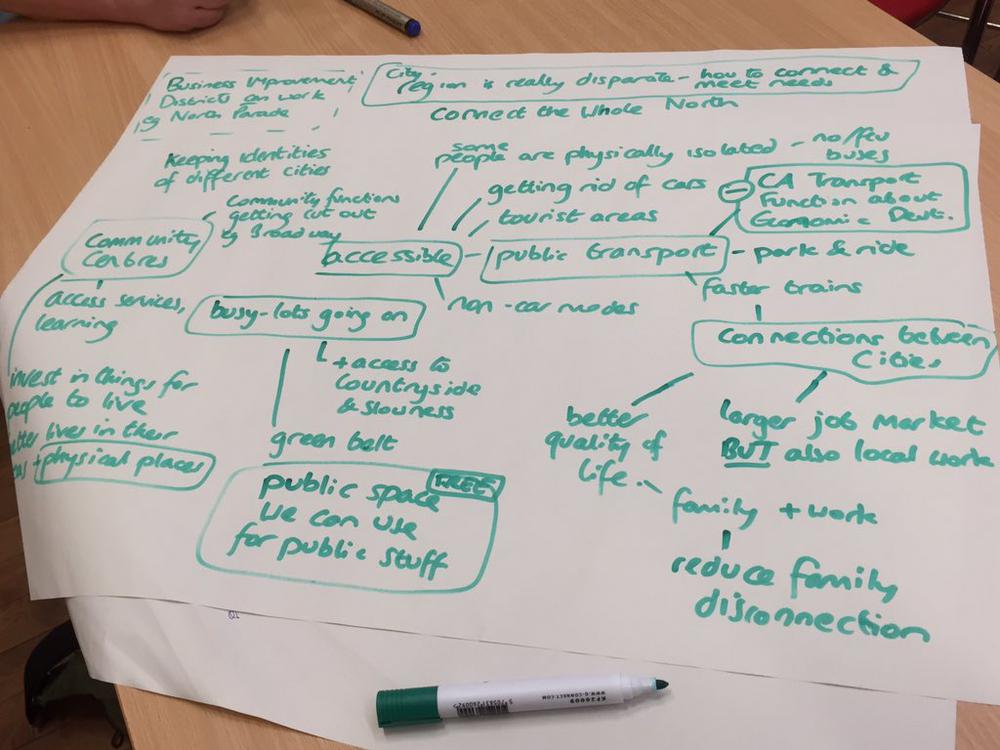 Business Improvement
Districts can work
eg North Parade
City
region is really disparate - how to connect &
meet needs
Connect the Whole North
Keeping identities
of different cities
some
people are physically isolated - no/few
buses
getting rid of cars
tourist areas
CA Transport
Function about
Economic Devt.
Community functions
getting cut out
eg Broadway
Community
Centres
accessible - public transport - park & ride
access services,
learning
busy - lots going on
non-car modes
faster trains
connections between
Cities
+ access to
Countryside
& slowness
invest in things for
people to live
better lives in their
+ physical places
green belt
public space FREE
we can use
for public stuff
better
quality of
life
larger job market
BUT also local work
family + work
reduce family
disconnection
KF26009
WWW.Q-CONNECT.COM